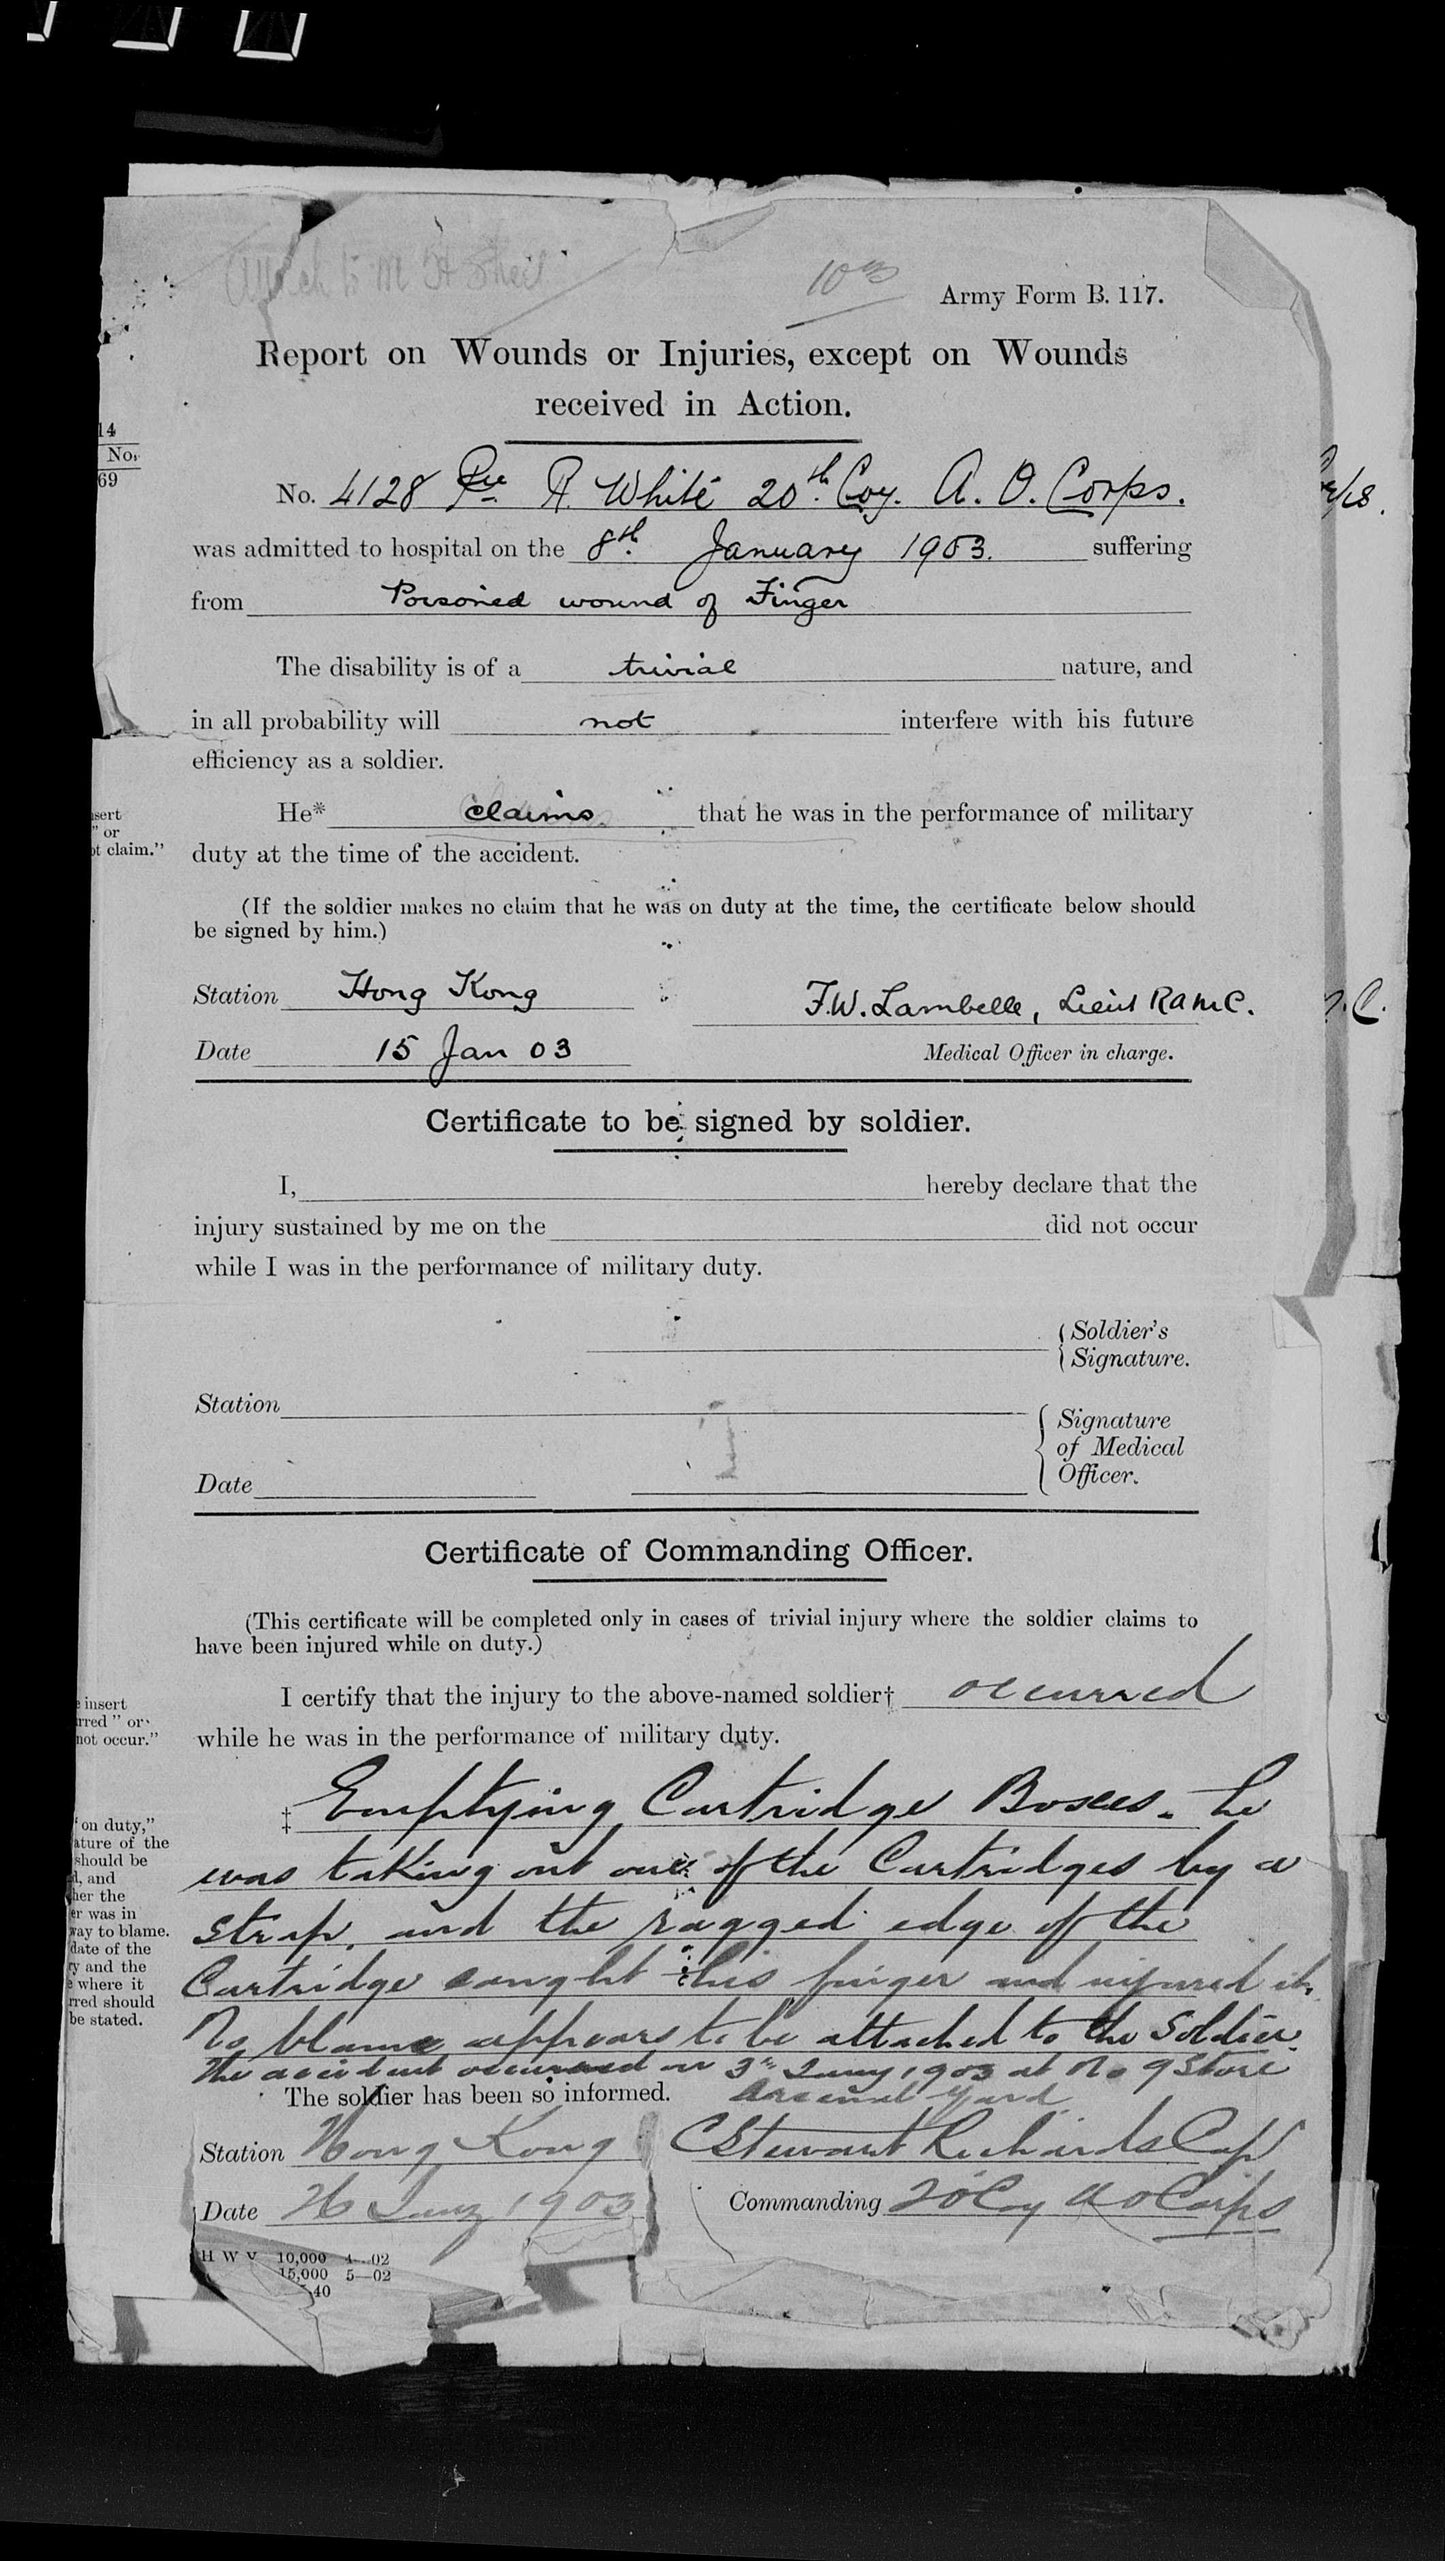 Attach to M H Sheet
10
Army Form B. 117.
Report on Wounds or Injuries, except on Wounds
received in Action.
14
No.
69
No. 4128 Pte R. White 20th Coy. A. O. Corps.
was admitted to hospital on the 8th January 1903. suffering
from Poisoned wound of Finger
The disability is of a trivial nature, and
in all probability will not interfere with his future
efficiency as a soldier.
He* claims that he was in the performance of military
duty at the time of the accident.
sert
" or
ot claim."
(If the soldier makes no claim that he was on duty at the time, the certificate below should
be signed by him.)
Station Hong Kong F.W. Lambelle, Lieut RAMC.
Date 15 Jan 03 Medical Officer in charge.
Certificate to be signed by soldier.
I, hereby declare that the
injury sustained by me on the did not occur
while I was in the performance of military duty.
Soldier's
Signature.
Station
Signature
of Medical
Officer.
Date
Certificate of Commanding Officer.
(This certificate will be completed only in cases of trivial injury where the soldier claims to
have been injured while on duty.)
I certify that the injury to the above-named soldier† occurred
while he was in the performance of military duty.
e insert
rred " or
not occur."
‡ Emptying Cartridge Boxes. he
was taking out one of the Cartridges by a
strap, and the ragged edge of the
Cartridge caught his finger and injured it.
No blame appears to be attached to the Soldier.
The accident occurred on 3rd Jany 1903 at No 9 Store
Arsenal Yard
on duty,"
ature of the
should be
d, and
her the
er was in
way to blame.
date of the
ry and the
e where it
rred should
be stated.
The soldier has been so informed.
Station Hong Kong C Stewart Richards Capt
Date 26 Jany 1903 Commanding 20 Coy A O Corps
H W V 10,000 4—02
15,000 5—02
40